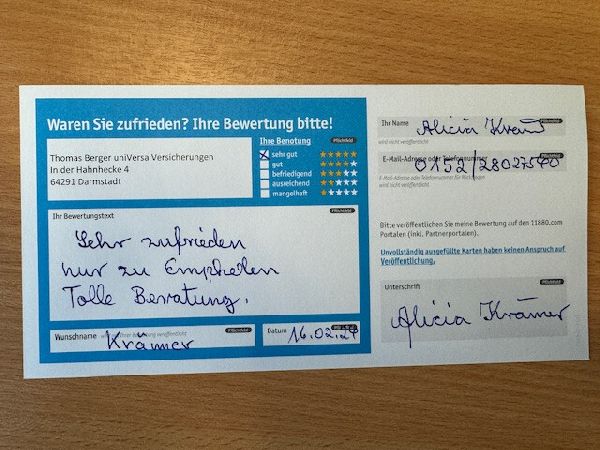 Waren Sie zufrieden? Ihre Bewertung bitte!
Thomas Berger uniVersa Versicherungen
In der Hahnhecke 4
64291 Darmstadt
Ihre Benotung Pflichtfeld
sehr gut
gut
befriedigend
ausreichend
mangelhaft
Ihr Bewertungstext Pflichtfeld
Sehr zufrieden
nur zu Empfehlen
Tolle Beratung.
Wunschname Pflichtfeld
Krämer
Datum
16.02.24
Ihr Name Pflichtfeld
Alicia
wird nicht veröffentlicht
E-Mail-Adresse oder Telefonnummer Pflichtfeld
0152/28027540
E-Mail-Adresse oder Telefonnummer für Rückfragen
wird nicht veröffentlicht
Bitte veröffentlichen Sie meine Bewertung auf den 11880.com
Portalen (inkl. Partnerportalen).
Unvollständig ausgefüllte Karten haben keinen Anspruch auf
Veröffentlichung.
Unterschrift Pflichtfeld
Alicia Krämer